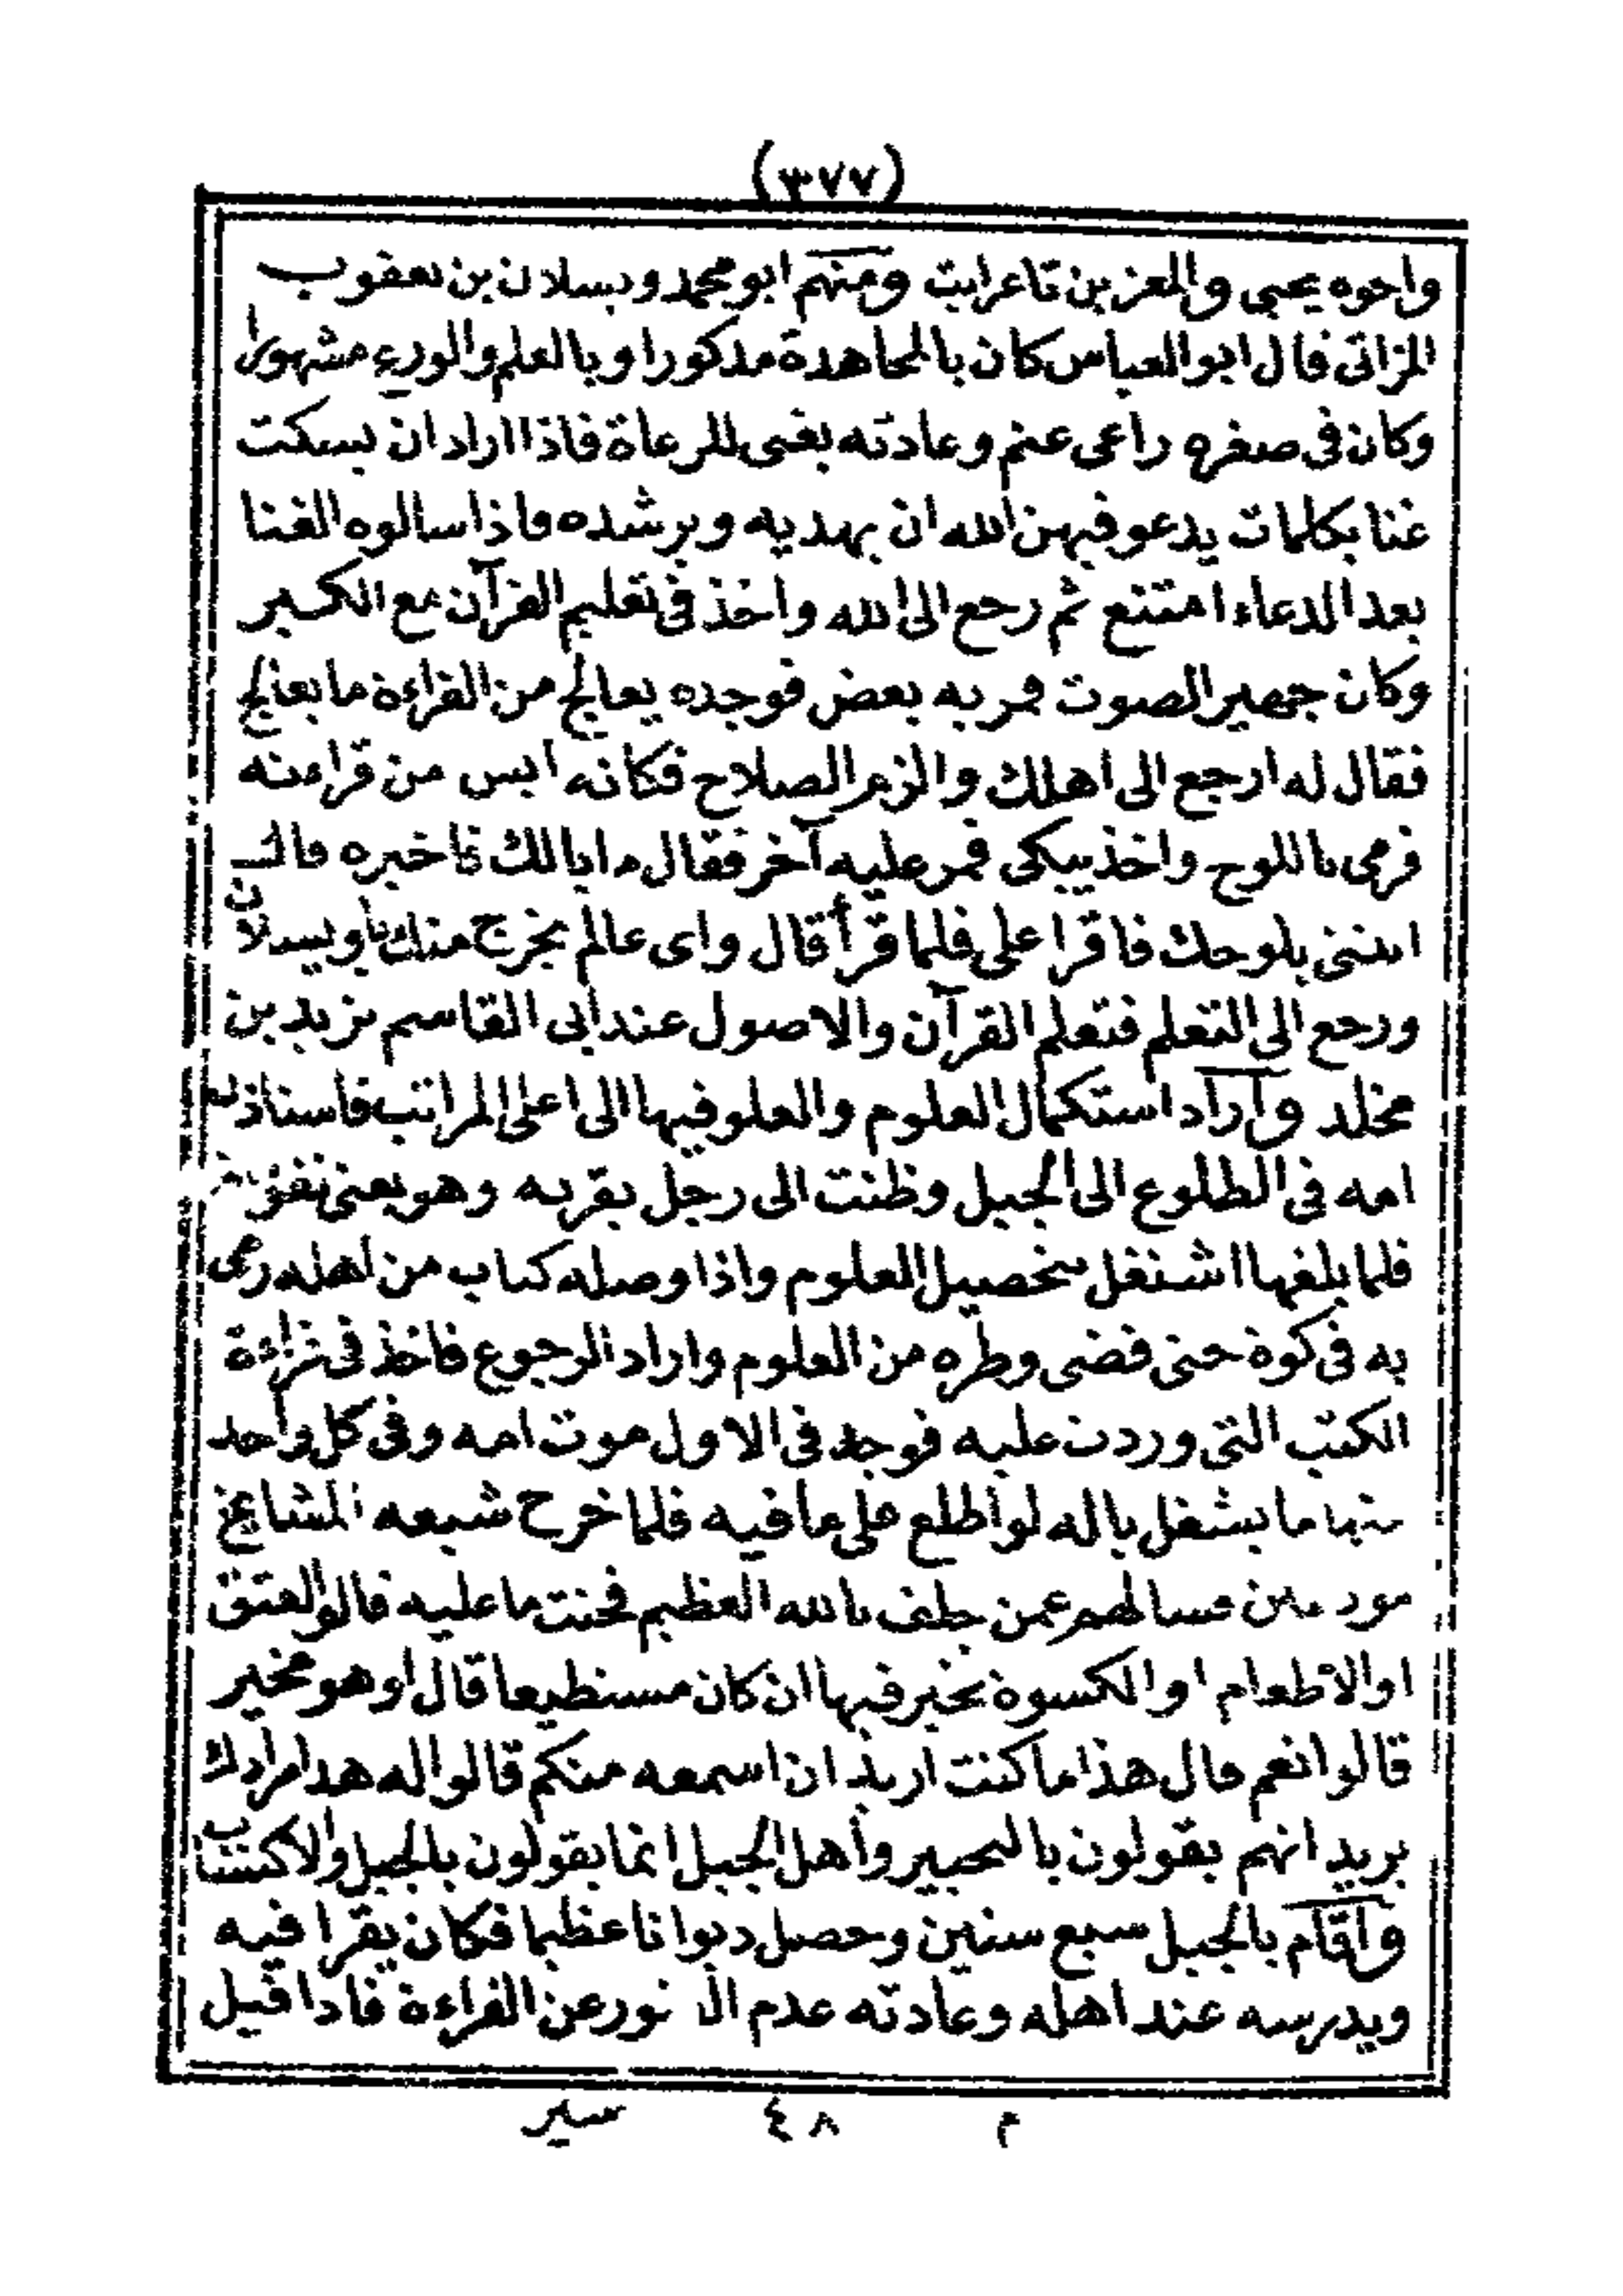 (٣٧٧)
واخوه يحيى والمعز بن تاعرابت ومنهم ابو محمد ويسلان بن يعقوب
المزاتى قال ابو العباس كان بالمجاهدة مذكورا وبالعلم والورع مشهورا
وكان فى صغره راعى غنم وعادته يغنى للرعاة فاذا اراد ان يسكت
غنا بكلمات يدعو فيهن الله ان يهديه ويرشده واذا سالوه الغنا
بعد الدعاء امتنع ثم رجع الى الله واخذ فى تعليم القرآن مع الكبر
وكان جهير الصوت فمر به بعض فوجده يعالج من القراءة ما يعالج
فقال له ارجع الى اهلك والزم الصلاح فكانه ايس من قراءته
فرمى باللوح واخذ يبكى فمر عليه آخر فقال ما بالك فاخبره قال
ايتنى بلوحك فاقرا على فلما قرأ قال واى عالم يخرج منك يا ويسلان
ورجع الى التعلم فتعلم القرآن والاصول عند أبى القاسم يزيد بن
مخلد وأراد استكمال العلوم والعلو فيها الى اعلى المراتب فاستاذن
امه فى الطلوع الى الجبل وظنت الى رجل بقربه وهو يعنى نفوسة
فلما بلغها اشتغل بتحصيل العلوم واذا وصله كتاب من اهله رمى
به فى كوة حتى قضى وطره من العلوم واراد الرجوع فاخذ فى قراءة
الكتب التى وردت عليه فوجد فى الاول موت امه وفى كل واحد
منها ما يشغل باله لو اطلع على ما فيه فلما خرج شيعه المشايخ
مودعين فسالهم عمن حلف بالله العظيم فحنت ما عليه قالوا العتق
او الاطعام او الكسوة يخير فيها ان كان مستطيعا قال او هو مخير
قالوا نعم قال هذا ما كنت اريد ان اسمعه منكم قالوا له هذا مرادك
يريد انهم يقولون بالتخيير وأهل الجبل انما يقولون بالجبل والاكتساب
وأقام بالجبل سبع سنين وحصل ديوانا عظيما فكان يقرا فيه
ويدرسه عند اهله وعادته عدم الفتور عن القراءة فاذا قيل
م ٤٨ سير